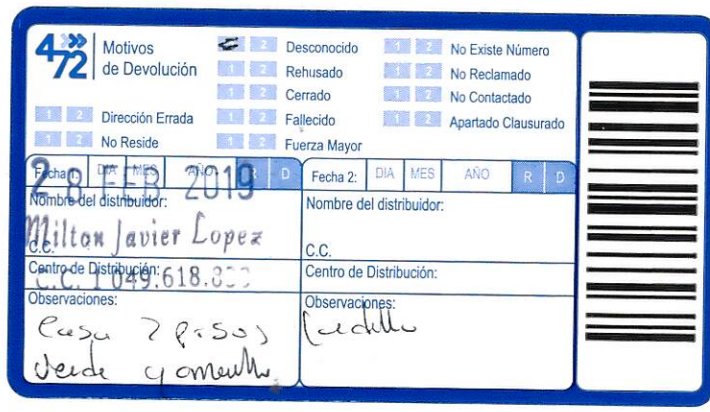 472 Motivos de Devolución
1 2 Desconocido
1 2 Rehusado
1 2 Cerrado
1 2 Fallecido
1 2 Fuerza Mayor
1 2 No Existe Número
1 2 No Reclamado
1 2 No Contactado
1 2 Apartado Clausurado
1 2 Dirección Errada
1 2 No Reside
Fecha 1: DIA MES AÑO R D
28 FEB 2019
Nombre del distribuidor:
Milton Javier Lopez
C.C.
Centro de Distribución:
C.C. 1 049.618.8
Observaciones:
Casa 2 pisos
verde
Fecha 2: DIA MES AÑO R D
Nombre del distribuidor:
C.C.
Centro de Distribución:
Observaciones: